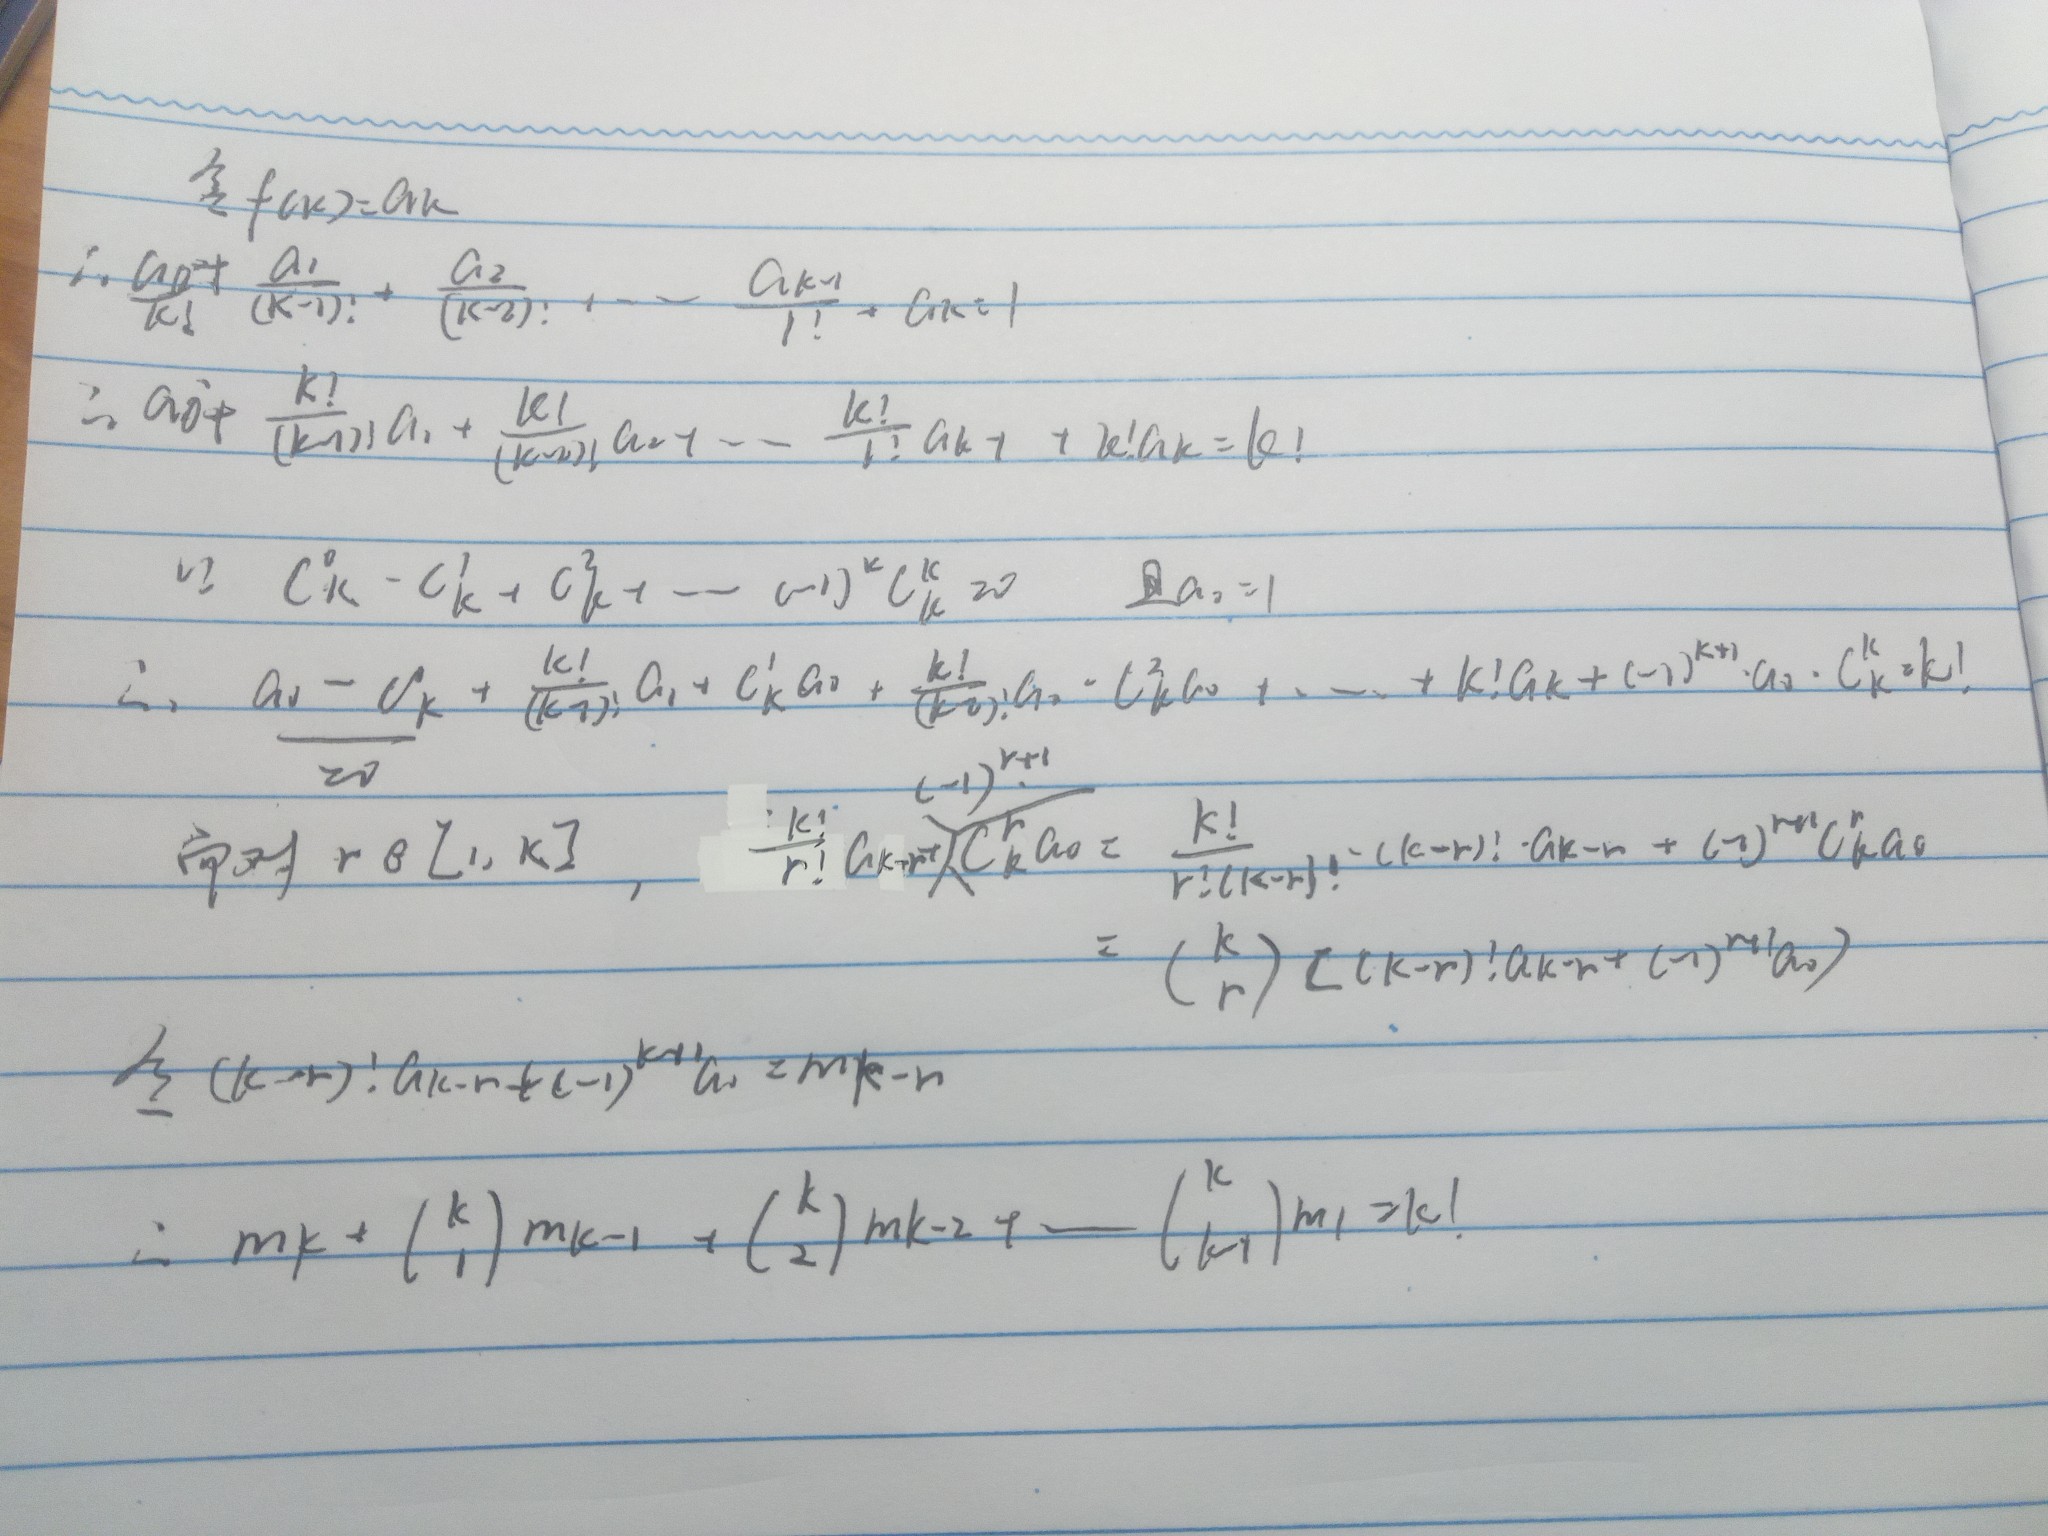 令 f(k)=ak
∴ a0/k! + a1/(k-1)! + a2/(k-2)! + ... ak-1/1! + ak=1
∴ a0+ k!/(k-1)! a1 + k!/(k-2)! a2+ ... k!/1! ak-1 + k!ak=k!
∵ C⁰k - C¹k + C²k + ... (-1)^k C^k_k =0 且a0=1
∴ a0 - C⁰k + k!/(k-1)! a1 + C¹k a0 + k!/(k-2)! a2 - C²k a0 + ... + k!ak+(-1)^(k+1)·a0·C^k_k=k!
=0
而对 r∈[1,k], k!/r! ak-r+ (-1)^(r+1) C^r_k a0 = k!/(r!(k-r)!) ·(k-r)!·ak-r + (-1)^(r+1) C^r_k a0
= (k r) [(k-r)!ak-r+(-1)^(r+1)a0)
令 (k-r)!ak-r+(-1)^(k+1)a0=mk-r
∴ mk+ (k 1) mk-1 + (k 2) mk-2+ — (k k-1) m1=k!